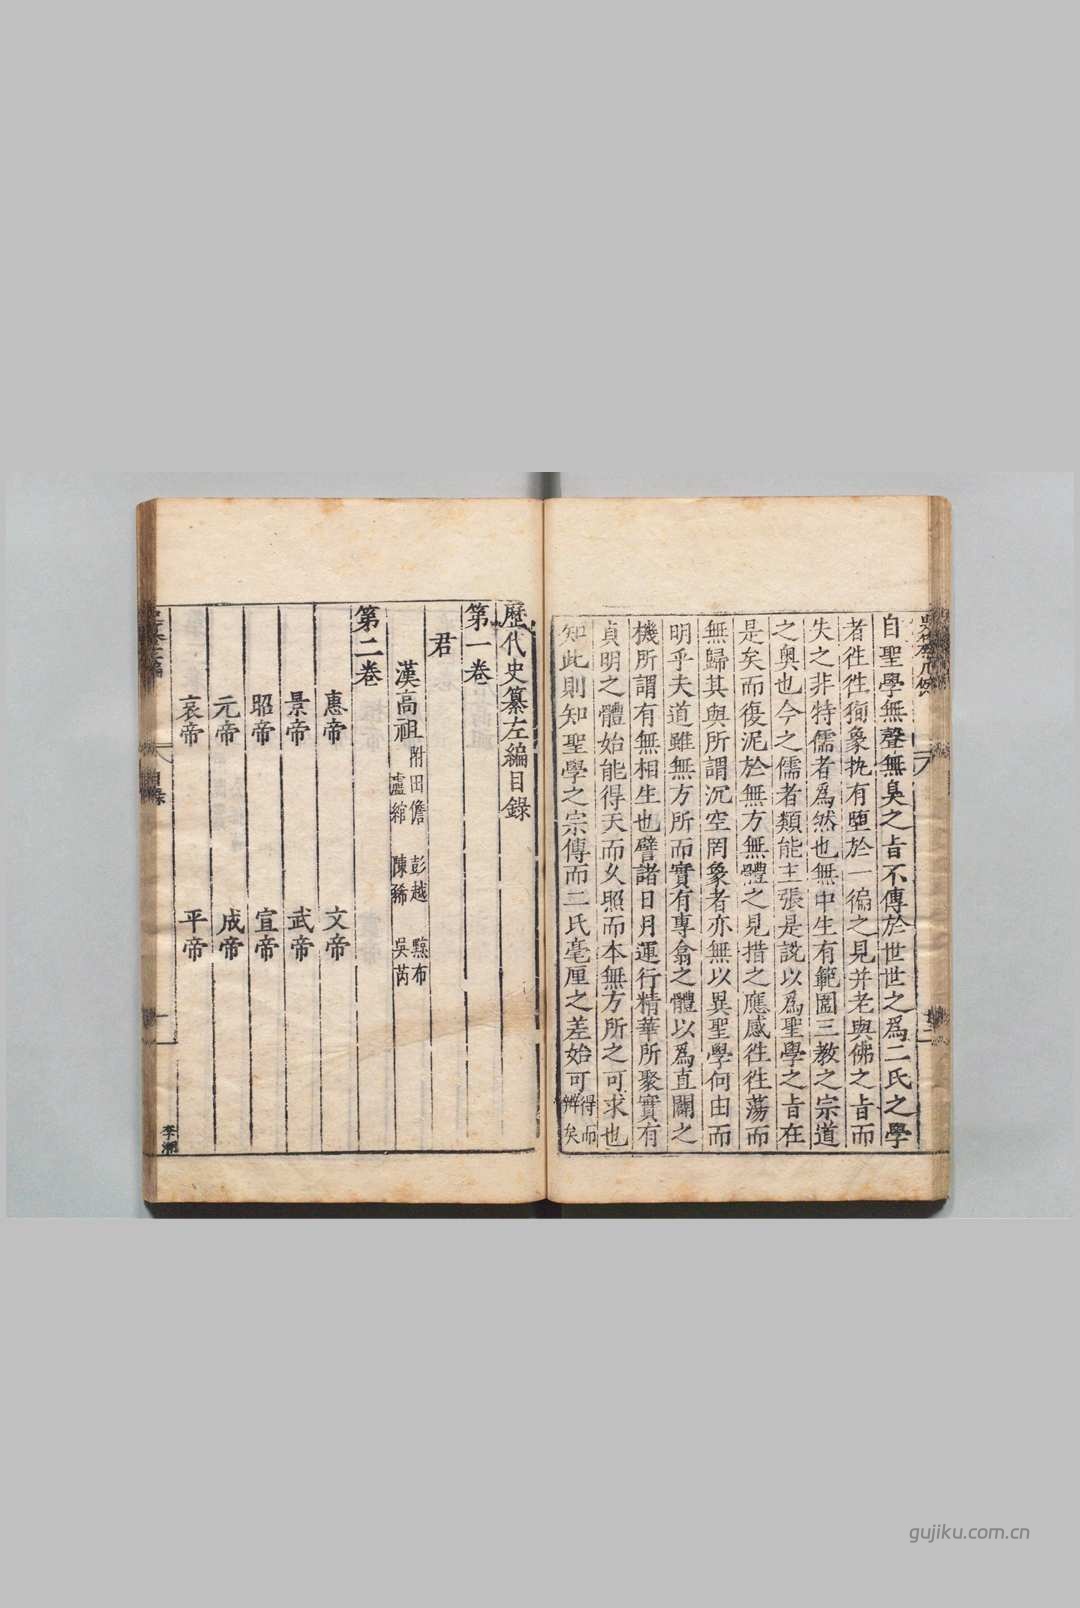 自聖學無聲無臭之旨不傳於世世之爲二氏之學
者徃徃狥象執有墮於一徧之見并老與佛之旨而
失之非特儒者爲然也無中生有範圍三教之宗道
之奧也今之儒者類能主張是說以爲聖學之旨在
是矣而復泥於無方無體之見措之應感徃徃蕩而
無歸其與所謂沉空罔象者亦無以異聖學何由而
明乎夫道雖無方所而實有專翕之體以爲直闢之
機所謂有無相生也譬諸日月運行精華所聚實有
貞明之體始能得天而久照而本無方所之可求也
知此則知聖學之宗傳而二氏毫厘之差始可得而辨矣
歷代史纂左編目錄
第一卷
君
漢高祖 附田儋 彭越 黥布
盧綰 陳豨 吳芮
第二卷
惠帝 文帝
景帝 武帝
昭帝 宣帝
元帝 成帝
哀帝 平帝
目錄
一
李潮
gujiku.com.cn